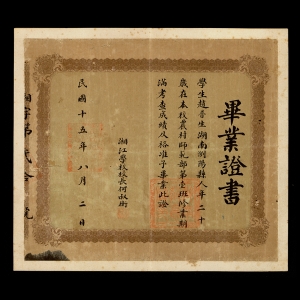 畢業證書
學生趙書生湖南瀏陽縣人年二十
歲在本校農村師範部第壹班修業期
滿考查成績及格准予畢業此證
湘江學校校長何叔衡
民國十五年八月二日